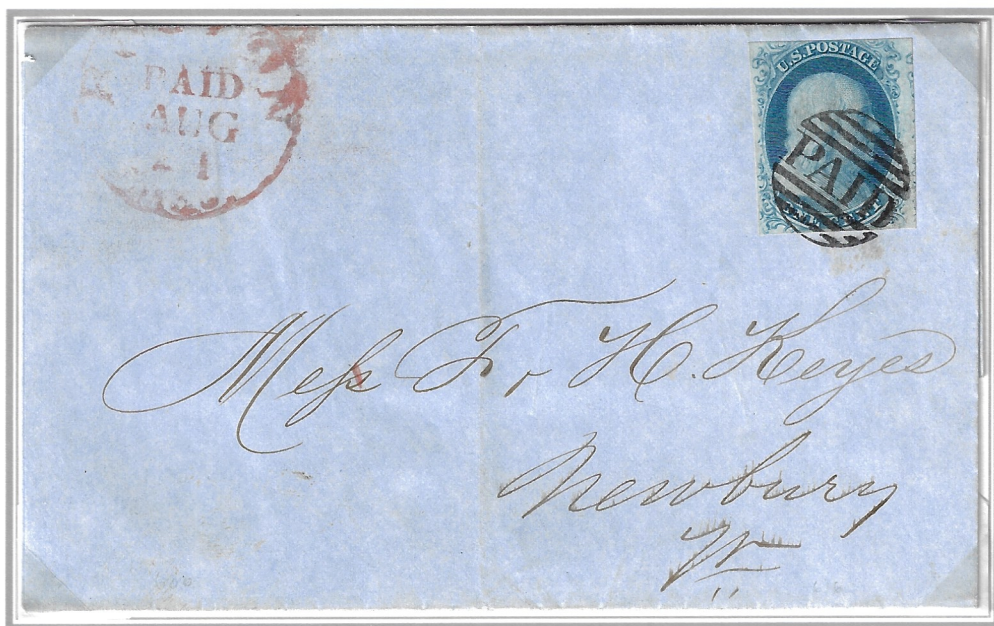 PAID
AUG
1
U.S. POSTAGE
PAID
Mess F. H. Keyes
Newbury
Vt